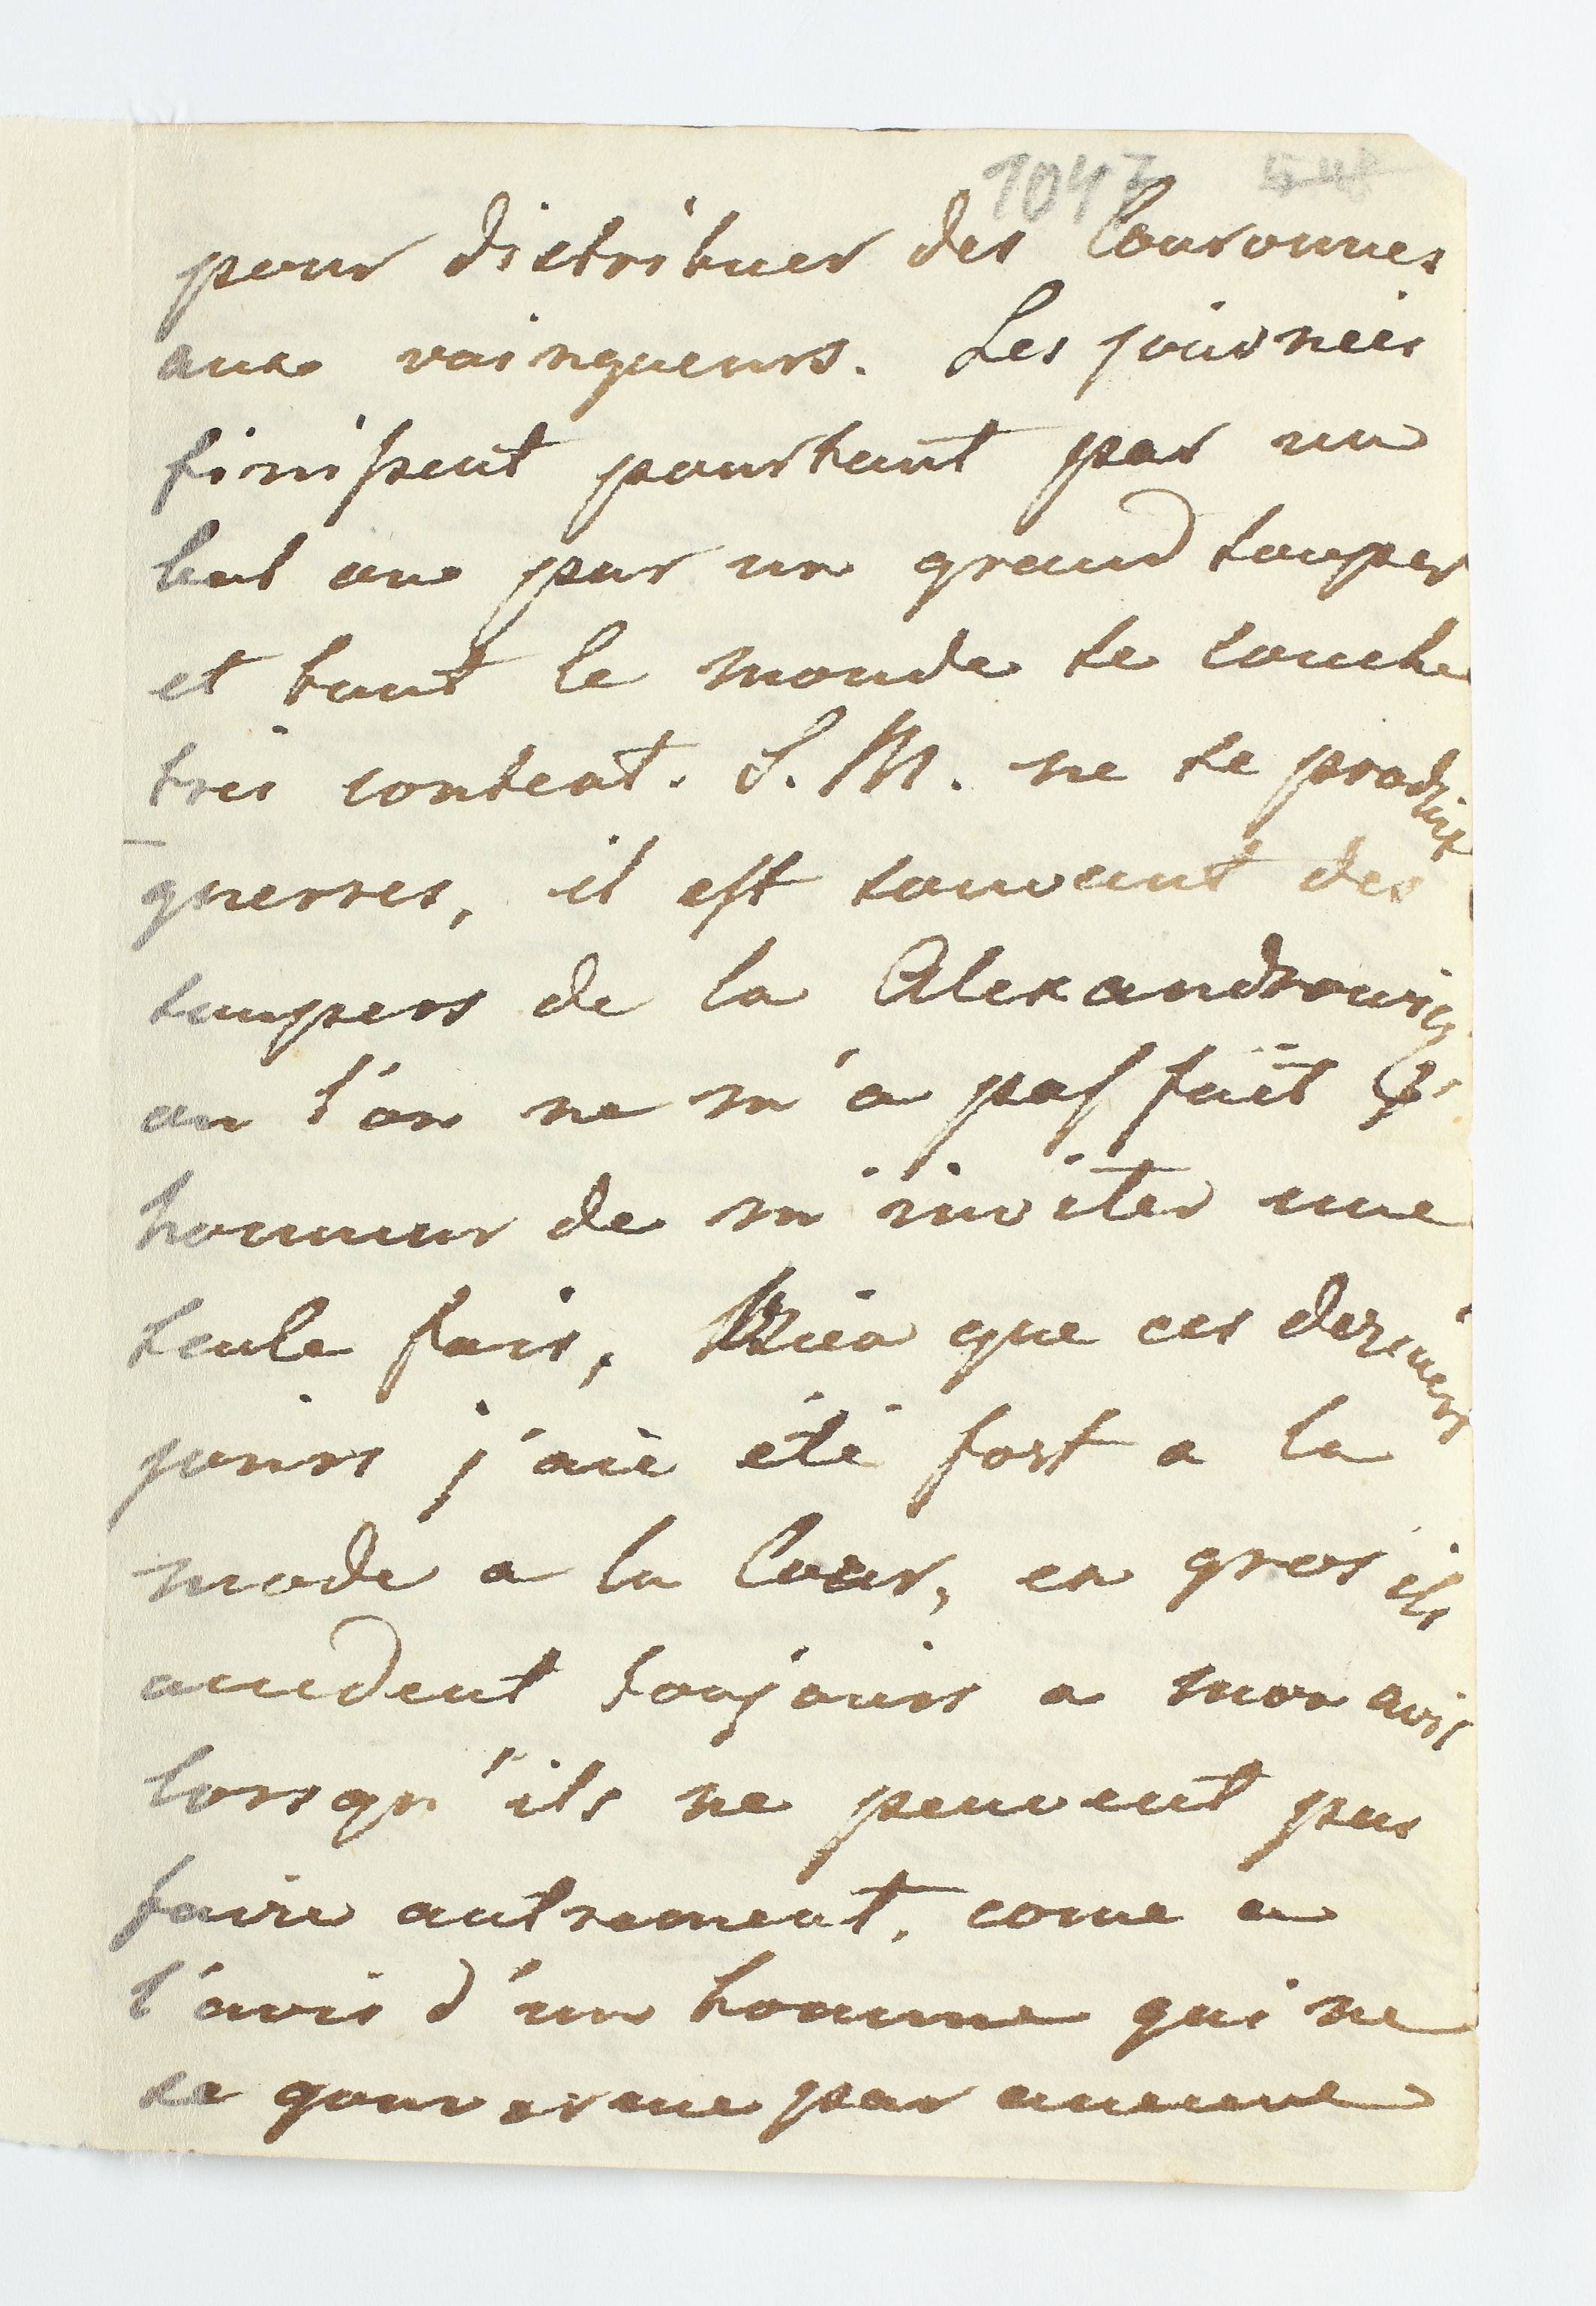 1047 548
pour distribuer des Couronnes
aux vainqueurs. Les journéés
finissent pourtant par un
bal ou par un grand souper
et tout le monde se couche
tres content. S. M. ne se produit
guerres, il est souvant des
soupers de la Alexandrowicz
ou l'on ne m'a pas fait l'
honneur de m'inviter une
seule fois, Bien que ces derniers
jours j'aie été fort a la
mode a la Cour, en gros ils
accedent toujours a mon avis
lorsqu'ils ne peuvent pas
faire autrement, come a
l'avis d'un homme qui ne
se gouverne par aucune